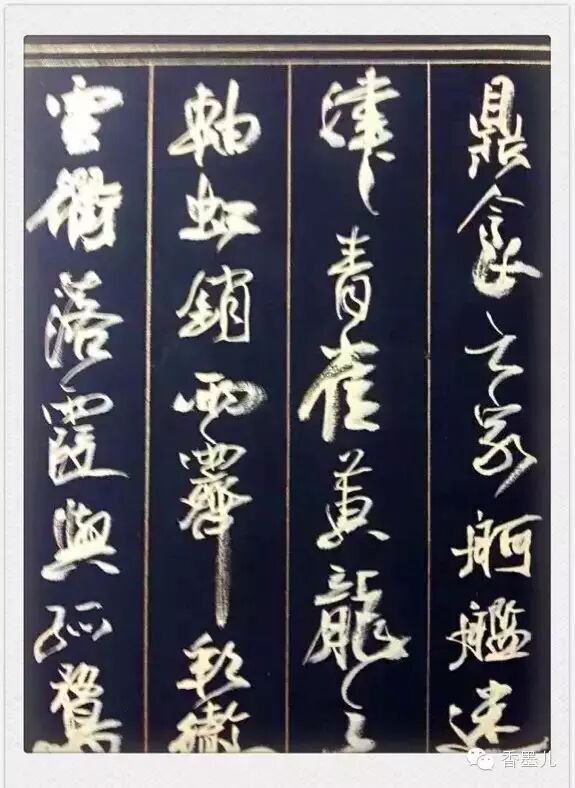 鼎食之家舸艦迷
津青雀黃龍之
軸虹銷雨霽彩徹
雲衢落霞與孤鶩
香墨儿